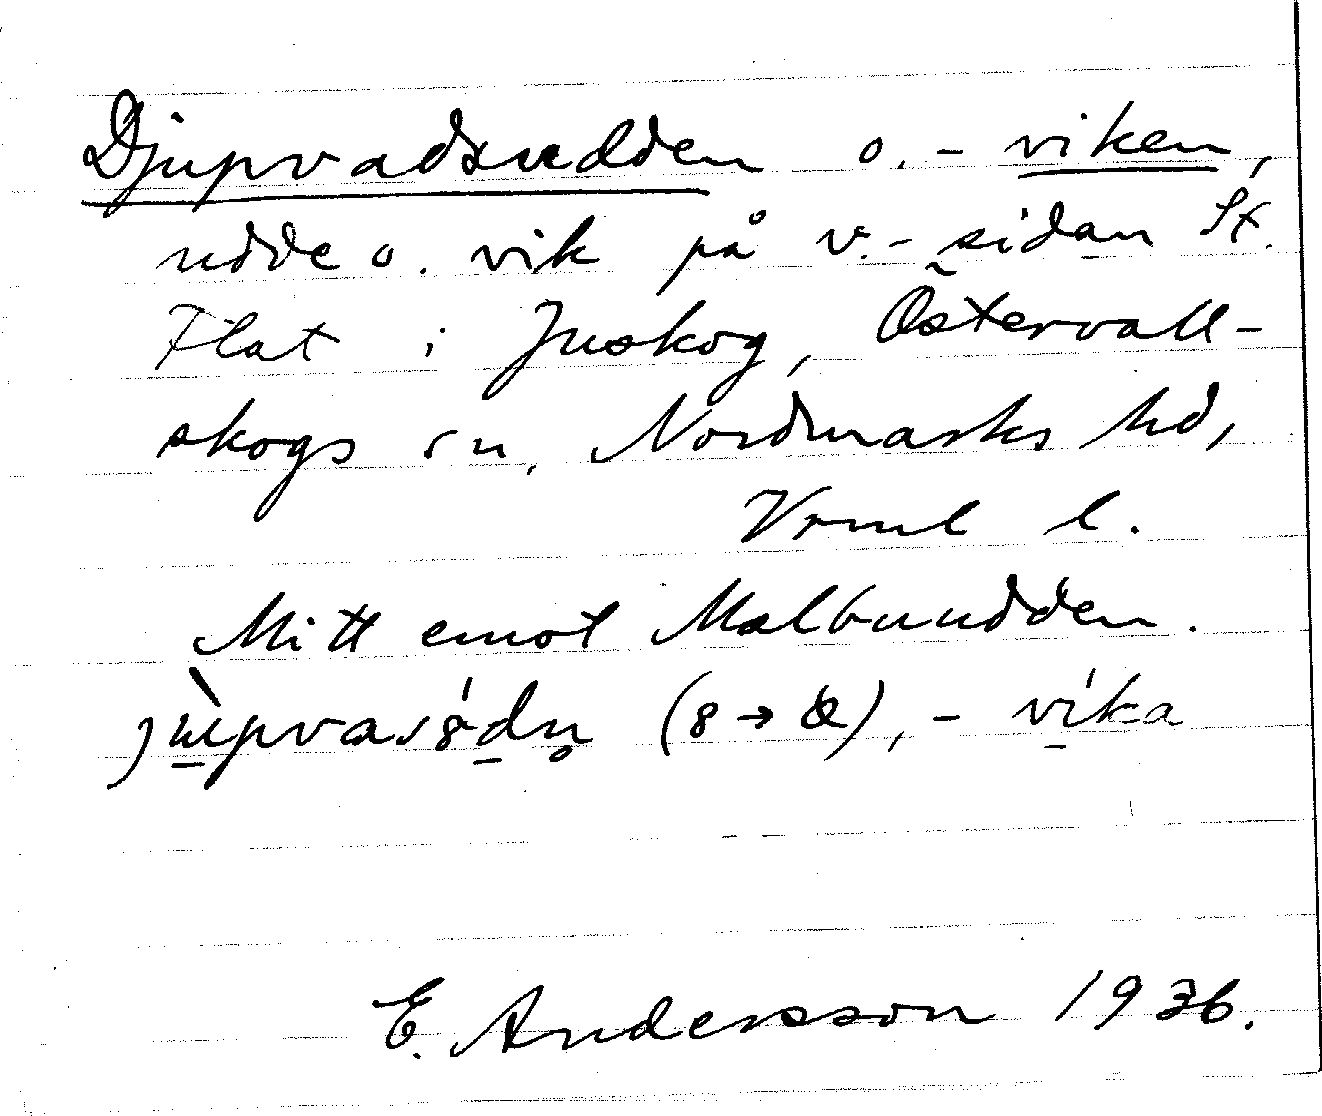 Djupvadsudden o. - viken,
udde o. vik på v.- sidan St.
Flat i Juskog, Östervall-
skogs sn, Nordmarks hd,
Vrml l.
Mitt emot Malbuudden.
(8 → ), - vika
E. Andersson 1936.